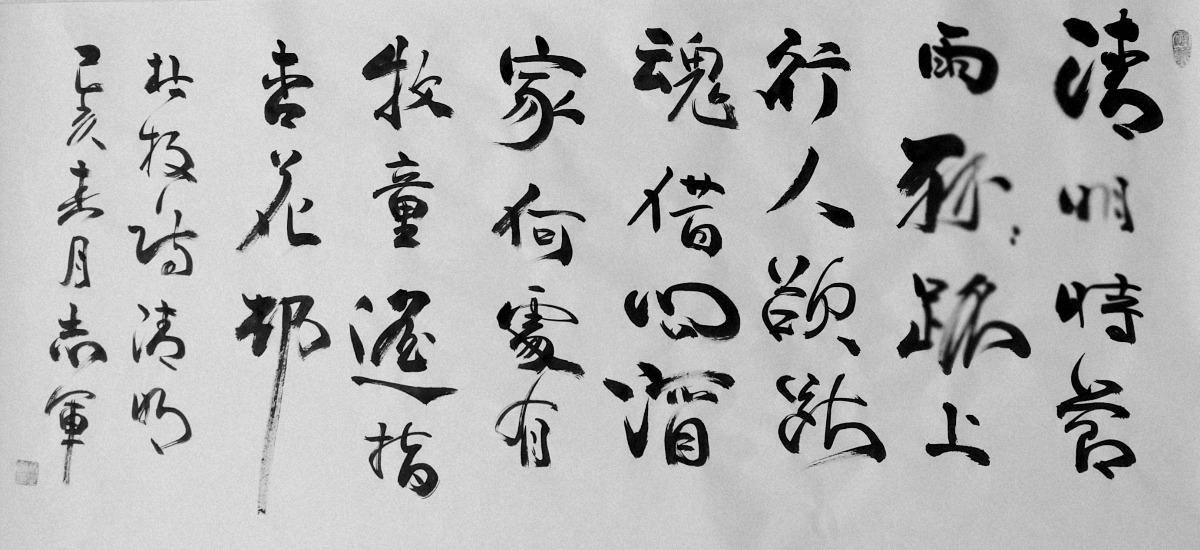 清明時節
雨紛〻路上
行人欲斷
魂借問酒
家何處有
牧童遥指
杏花邨
杜牧詩清明
己亥未月志軍